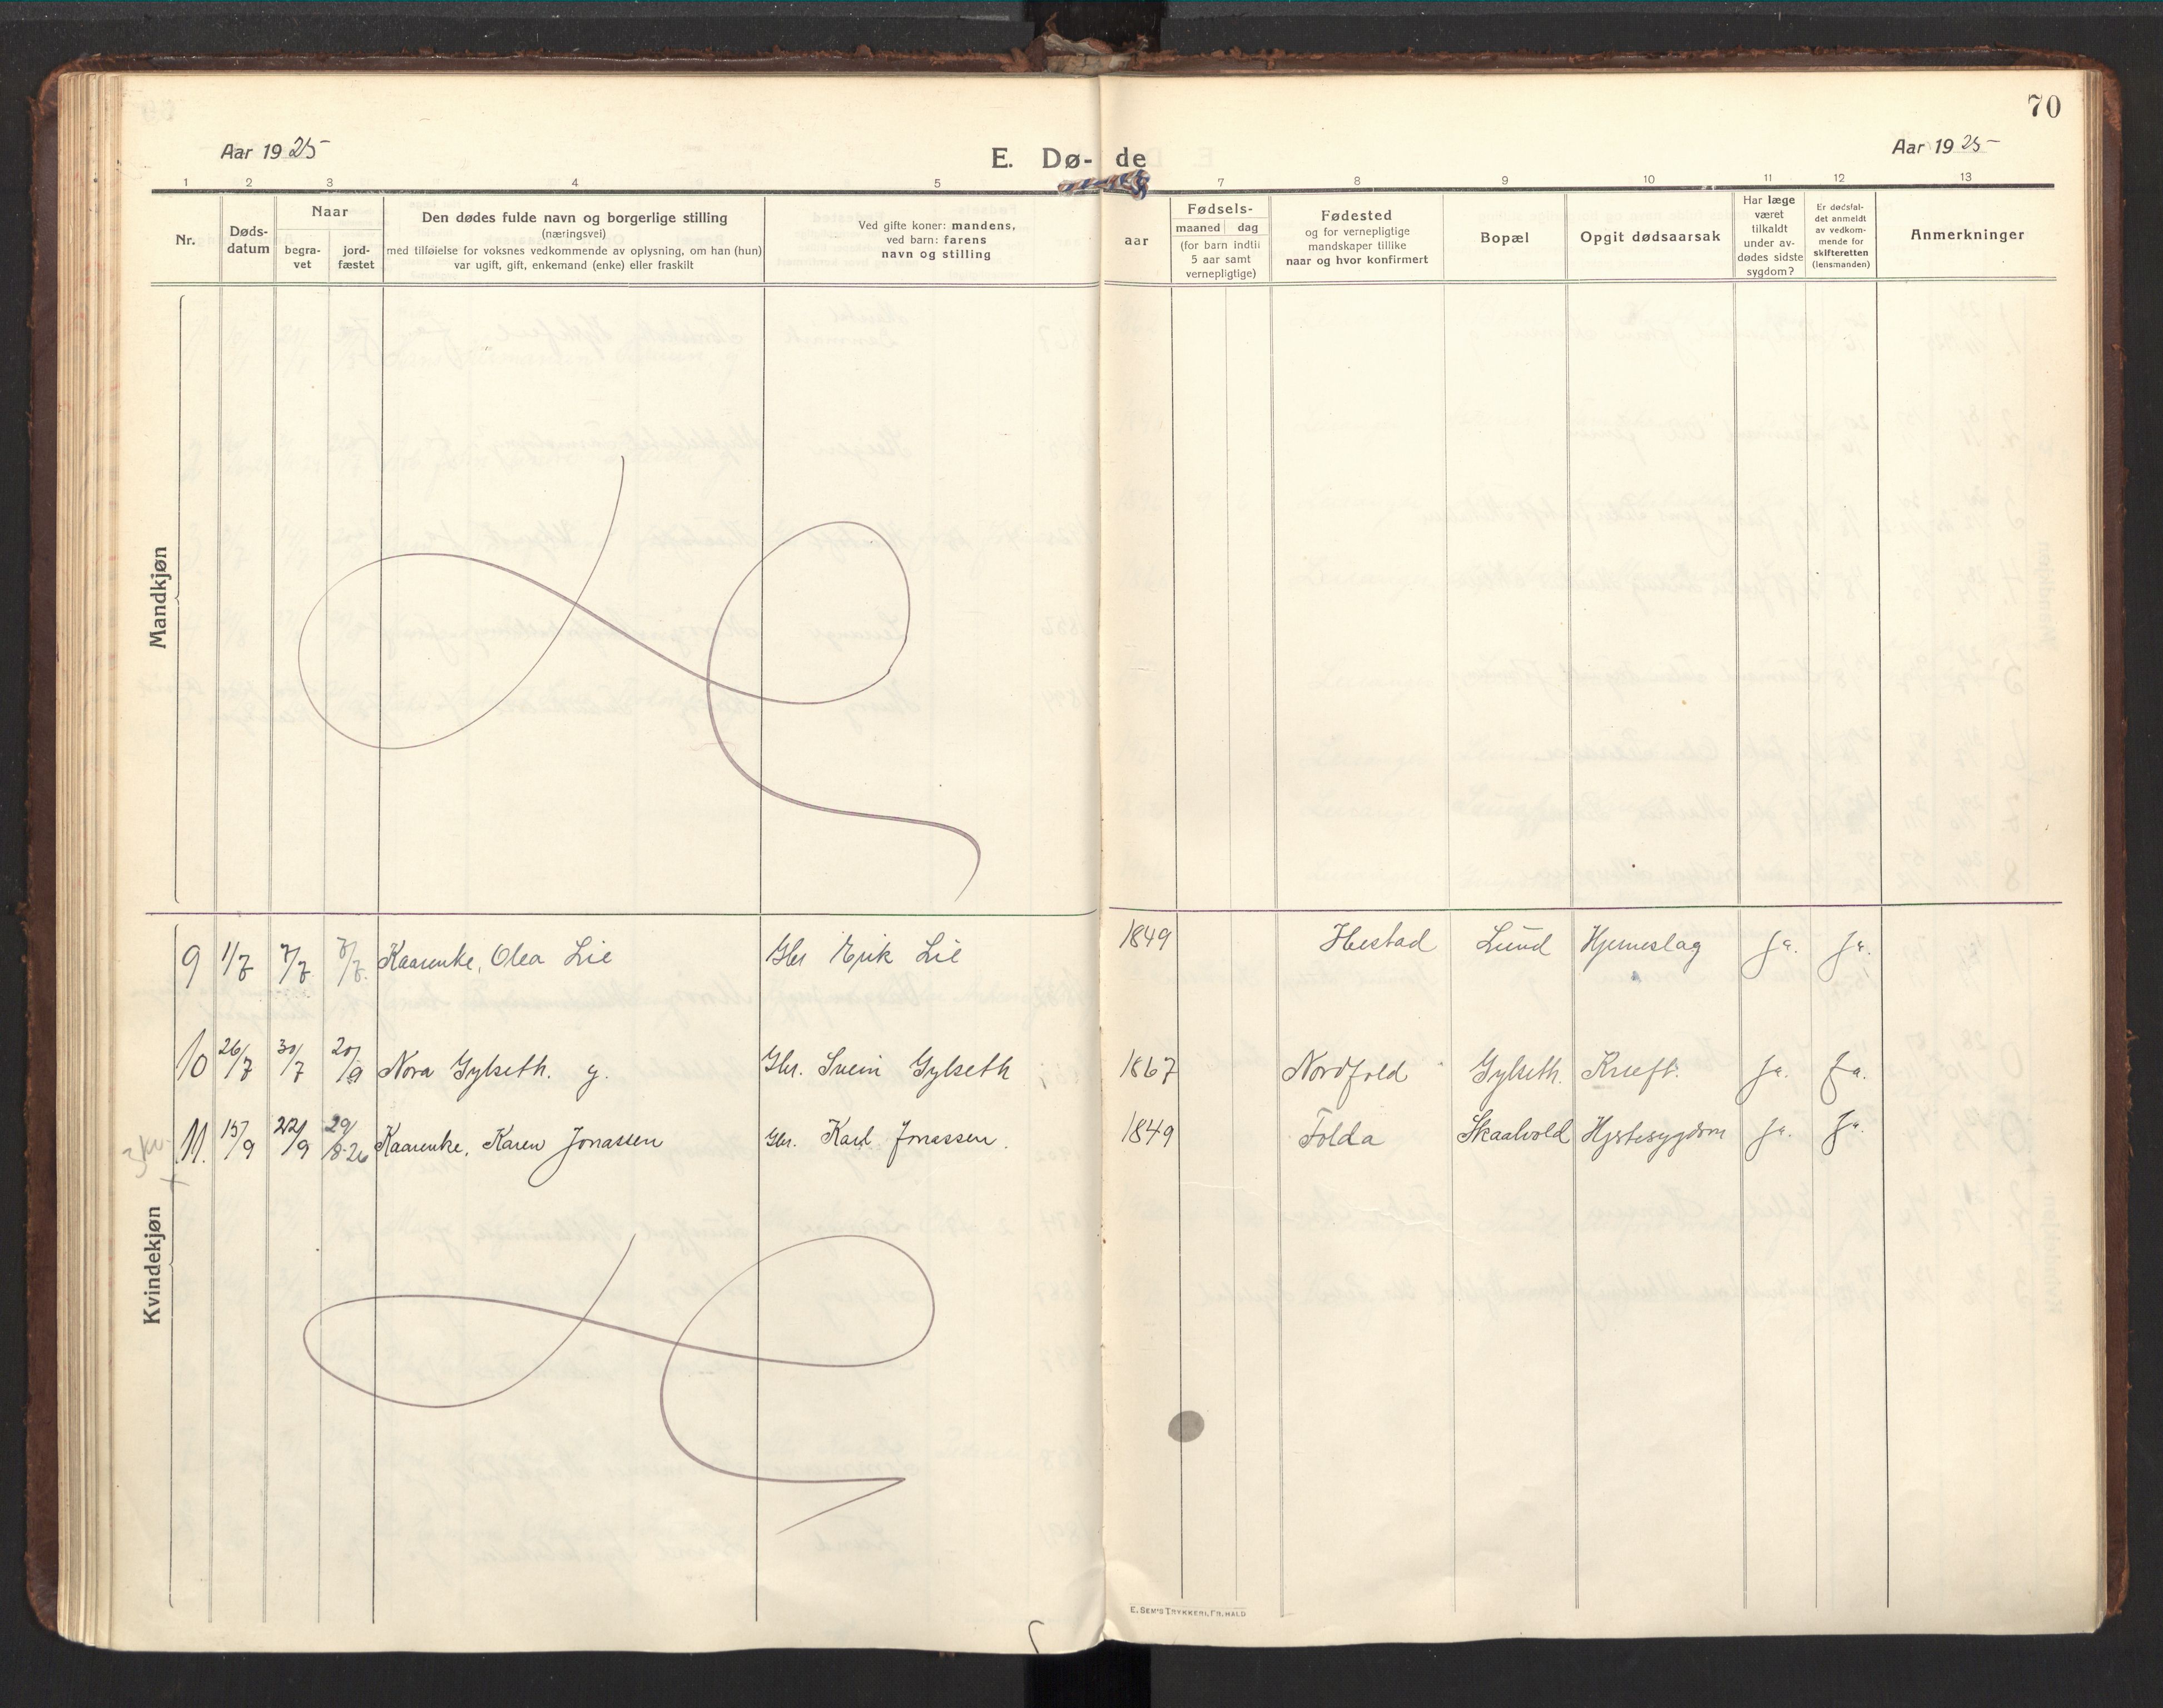 70
Aar 1925
E. Dø- de
Aar 1925
1 2 3 4 5 7 8 9 10 11 12 13
Nr.
Døds-
datum
Naar
begra-
vet
jord-
fæstet
Den dødes fulde navn og borgerlige stilling
(næringsvei)
med tilføielse for voksnes vedkommende av oplysning, om han (hun)
var ugift, gift, enkemand (enke) eller fraskilt
Ved gifte koner: mandens,
ved barn: farens
navn og stilling
aar
Fødsels-
maaned dag
(for barn indtil
5 aar samt
vernepligtige)
Fødested
og for vernepligtige
mandskaper tillike
naar og hvor konfirmert
Bopæl
Opgit dødsaarsak
Har læge
været
tilkaldt
under av-
dødes sidste
sygdom?
Er dødsfal-
det anmeldt
av vedkom-
mende for
skifteretten
(lensmanden)
Anmerkninger
Mandkjøn
9 1/7 7/7 7/7. Kaarenke, Olea Lie Gbr Erik Lie 1849 Hestad Lund Hjerneslag Ja. Ja.
10 26/7 30/7 20/9 Nora Gylseth. g. Gbr. Svein Gylseth 1867 Nordfold Gylseth. Kreft. Ja. Ja.
11. 15/9 22/9 29/8-26 Kaarenke, Karen Jonassen Gbr. Karl Jonassen. 1849 Folda Skaalvold Hjertesygdom Ja. Ja.
Kvindekjøn
E. SEM'S TRYKKERI, FR. HALD